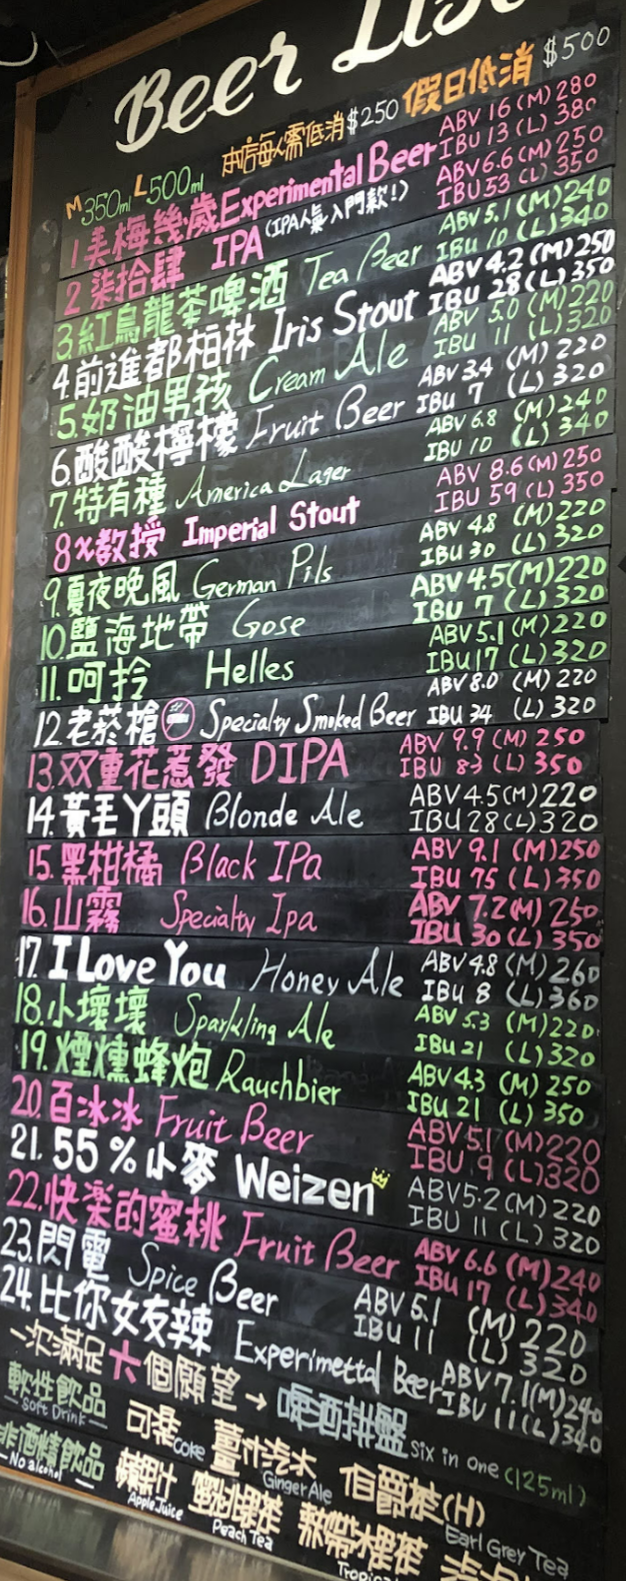 Beer List
M350ml L500ml 本店每人需低消$250 假日低消 $500
1美梅幾歲Experimental Beer ABV 16 (M) 280
IBU 13 (L) 380
2 柒拾肆 IPA (IPA人氣入門款!) ABV 6.6 (M) 250
IBU 53 (L) 350
3.紅烏龍茶啤酒 Tea Beer ABV 5.1 (M) 240
IBU 10 (L) 340
4.前進都柏林 Iris Stout ABV 4.2 (M) 250
IBU 28 (L) 350
5.奶油男孩 Cream Ale ABV 5.0 (M) 220
IBU 11 (L) 320
6.酸酸檸檬 Fruit Beer ABV 3.4 (M) 220
IBU 7 (L) 320
7.特有種 America Lager ABV 6.8 (M) 240
IBU 10 (L) 340
8.x教授 Imperial Stout ABV 8.6 (M) 250
IBU 59 (L) 350
9.夏夜晚風 German Pils ABV 4.8 (M) 220
IBU 30 (L) 320
10.鹽海地帶 Gose ABV 4.5 (M) 220
IBU 7 (L) 320
11.呵拎 Helles ABV 5.1 (M) 220
IBU 17 (L) 320
12.老菸槍 Specialty Smoked Beer ABV 8.0 (M) 220
IBU 34 (L) 320
13.双重花惹發 DIPA ABV 9.9 (M) 250
IBU 83 (L) 350
14.黃毛丫頭 Blonde Ale ABV 4.5 (M) 220
IBU 28 (L) 320
15.黑柑橘 Black IPa ABV 9.1 (M) 250
IBU 75 (L) 350
16.山霧 Specialty Ipa ABV 7.2 (M) 250
IBU 30 (L) 350
17. I Love You Honey Ale ABV 4.8 (M) 260
IBU 8 (L) 360
18.小壞壞 Sparkling Ale ABV 5.3 (M) 220
IBU 21 (L) 320
19.煙燻蜂炮 Rauchbier ABV 4.3 (M) 250
IBU 21 (L) 350
20.百冰冰 Fruit Beer ABV 5.1 (M) 220
IBU 9 (L) 320
21.55%小麥 Weizen ABV 5.2 (M) 220
IBU 11 (L) 320
22.快樂的蜜桃 Fruit Beer ABV 6.6 (M) 240
IBU 17 (L) 340
23.閃電 Spice Beer ABV 5.1 (M) 220
IBU 11 (L) 320
24.比你女友辣 Experimettal Beer ABV 7.1 (M) 240
IBU 11 (L) 340
一次滿足六個願望→啤酒拼盤 six in one (125ml)
軟性飲品 可樂 薑汁汽水 伯爵茶(H)
Soft Drink Coke Ginger Ale Earl Grey Tea
非酒精飲品 蘋果汁 蜜桃果茶 熱帶水果茶
No alcohol Apple Juice Peach Tea